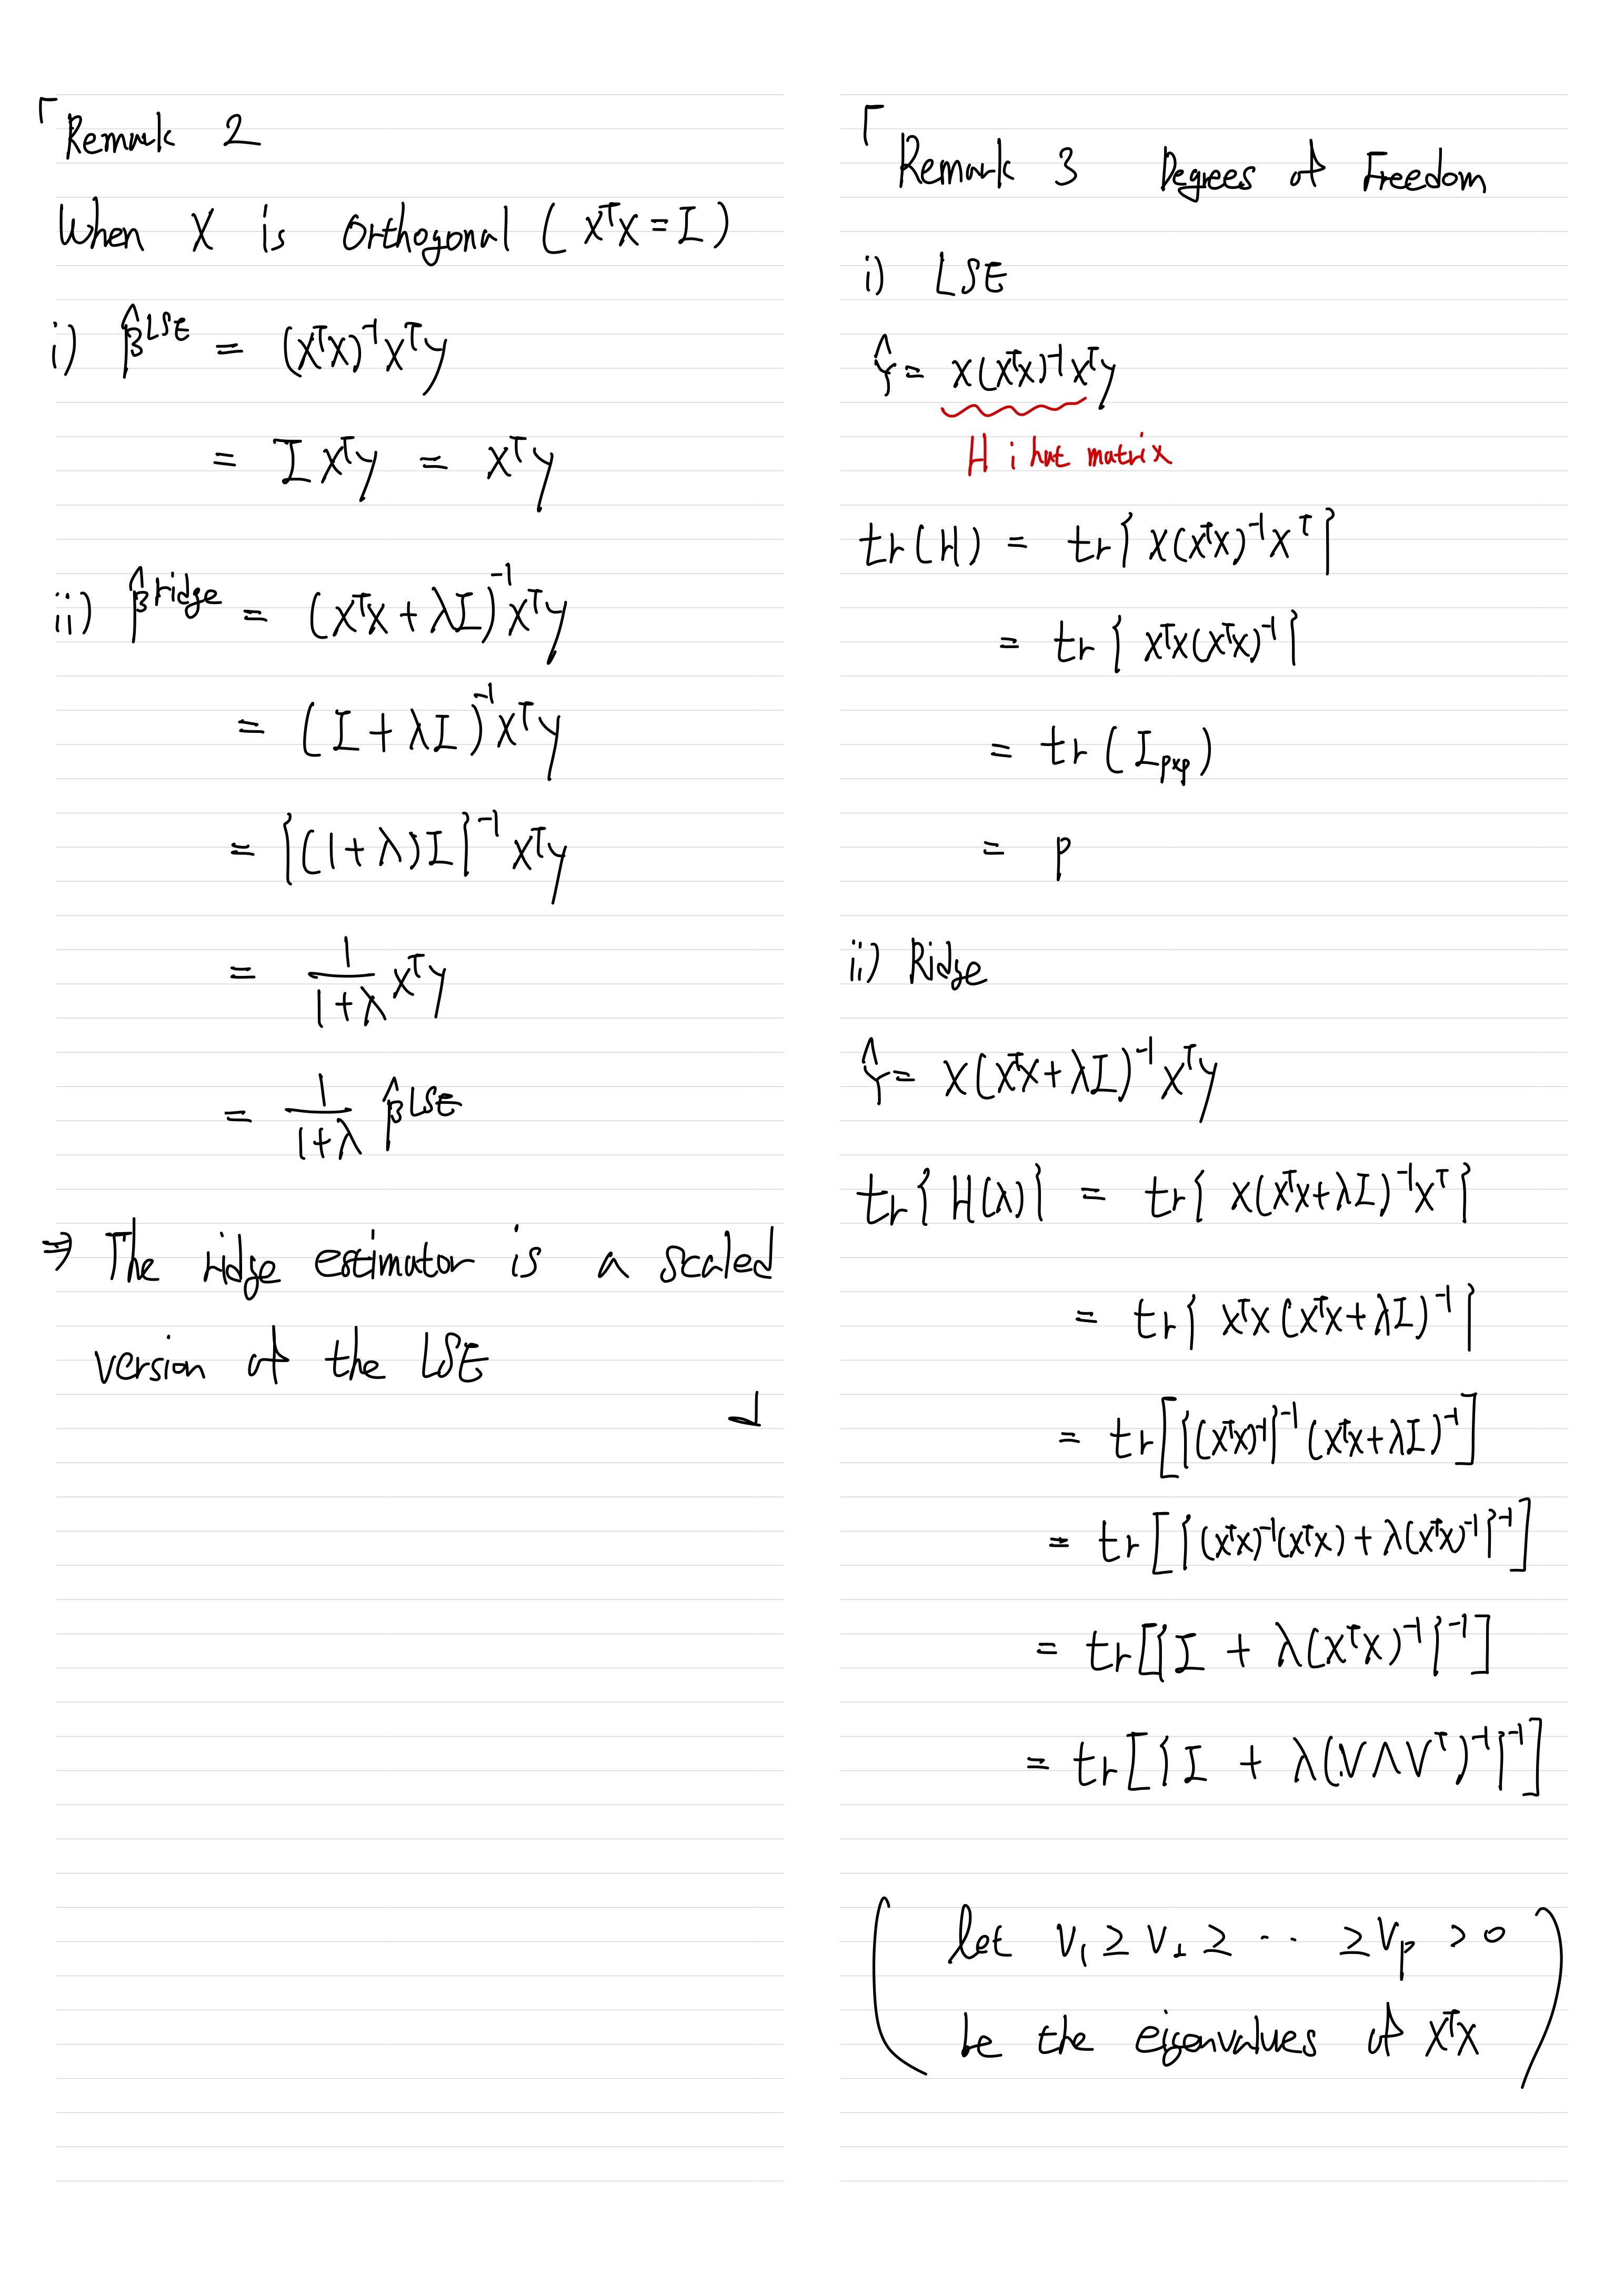 「Remark 2
When X is orthogonal (XᵀX = I)
i) β̂ᴸˢᴱ = (XᵀX)⁻¹Xᵀy
= I Xᵀy = Xᵀy
ii) β̂ʳⁱᵈᵍᵉ = (XᵀX + λI)⁻¹Xᵀy
= (I + λI)⁻¹Xᵀy
= {(1+λ)I}⁻¹ Xᵀy
= 1/(1+λ) Xᵀy
= 1/(1+λ) β̂ᴸˢᴱ
⇒ The ridge estimator is a scaled
version of the LSE
」
「Remark 3 Degrees of Freedom
i) LSE
Ŷ = X(XᵀX)⁻¹Xᵀy
H : hat matrix
tr(H) = tr{X(XᵀX)⁻¹Xᵀ}
= tr{XᵀX(XᵀX)⁻¹}
= tr(Iₚₓₚ)
= p
ii) Ridge
Ŷ = X(XᵀX+λI)⁻¹Xᵀy
tr{H(λ)} = tr{X(XᵀX+λI)⁻¹Xᵀ}
= tr{XᵀX(XᵀX+λI)⁻¹}
= tr[{(XᵀX)⁻¹}⁻¹(XᵀX+λI)⁻¹]
= tr[{(XᵀX)⁻¹(XᵀX) + λ(XᵀX)⁻¹}⁻¹]
= tr[{I + λ(XᵀX)⁻¹}⁻¹]
= tr[{I + λ(VΛVᵀ)⁻¹}⁻¹]
(let V₁ ≥ V₂ ≥ ⋯ ≥ Vₚ > 0
be the eigenvalues of XᵀX)